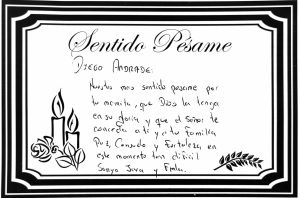 Sentido Pésame
DIEGO ANDRADE:
Nuestro mas sentido pesame por
tu mamita, que Dios la tenga
en su gloria y que el señor te
conceda a ti y a tu familia
Paz, Consuelo y Fortaleza, en
este momento tan dificil
Sonya Jara y Fmla.